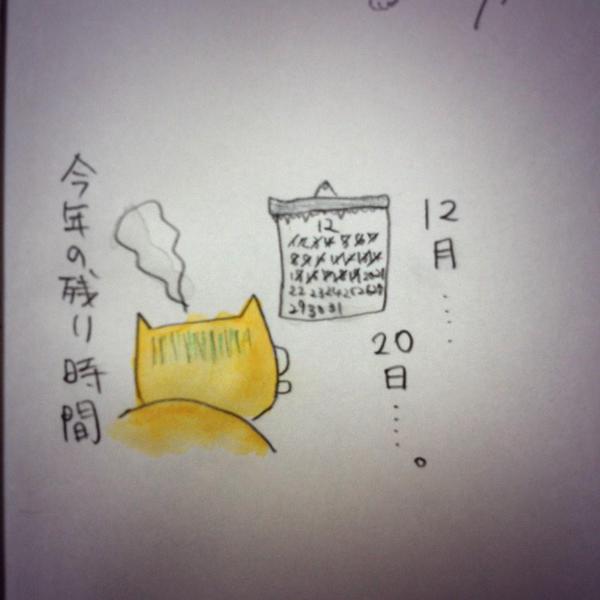 12月....
20日....。
12
22 23 24 25 26 27 28
29 30 31
今年の残り時間